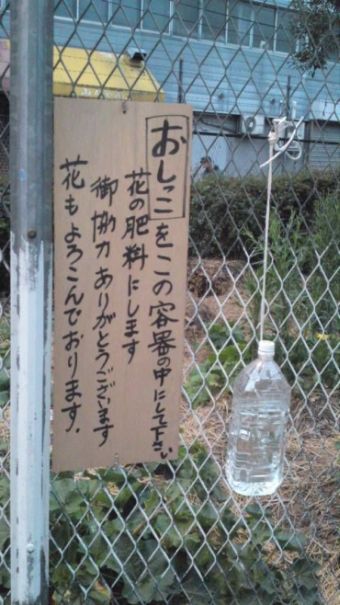 おしっこをこの容器の中にして下さい
花の肥料にします
御協力ありがとうございます
花もよろこんでおります.